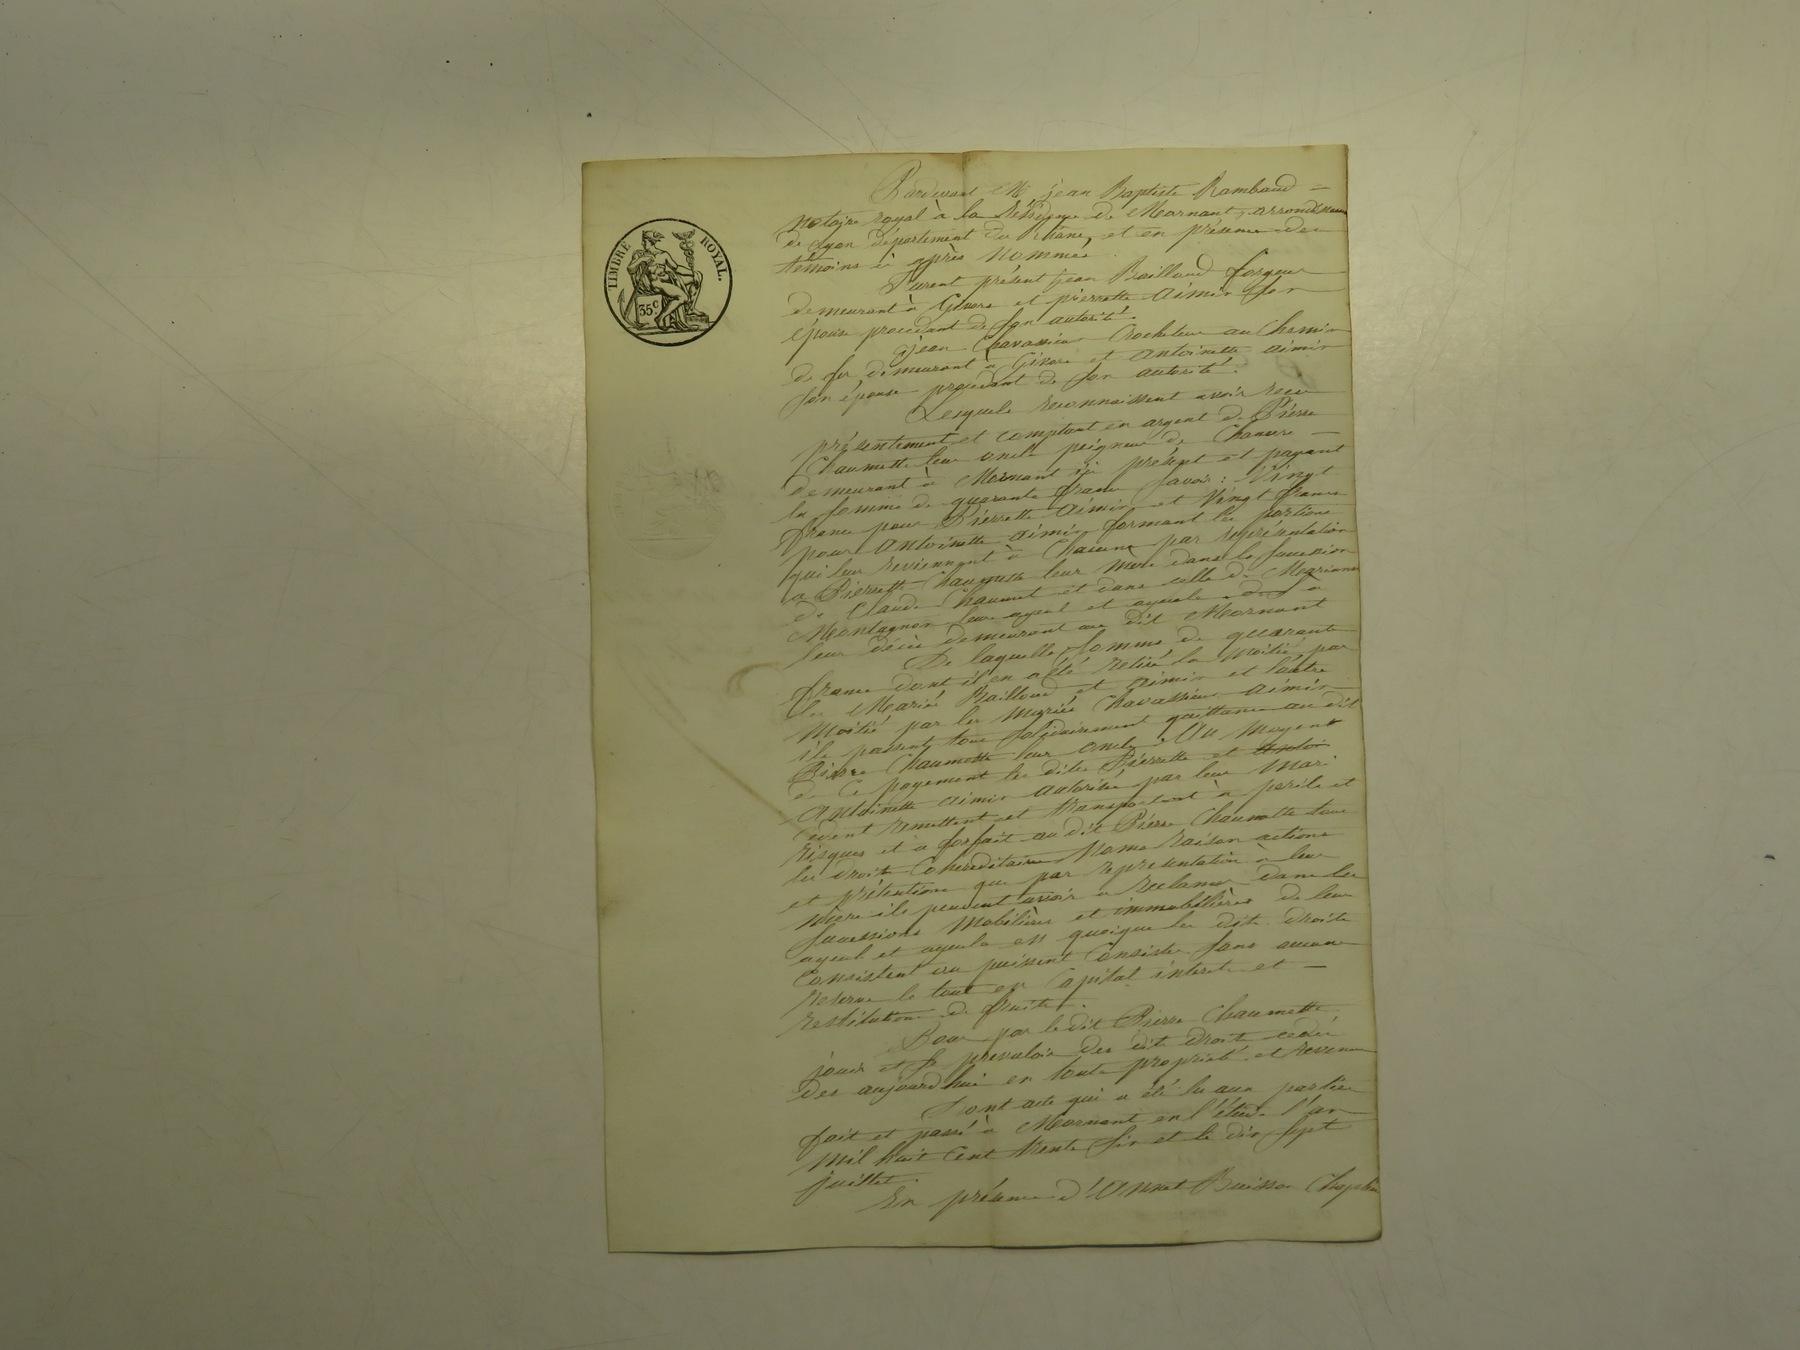 TIMBRE ROYAL.
35 c.
Pardevant Me jean Baptiste Rambaud =
notaire royal à la Résidence de Mornant, arrondissement
de Lyon département du Rhône, et en présence des
témoins ci après nommés.
Furent présent Jean Bailloud forgeur
demeurant à Givors et pierrette Aimin son
épouse procédant de son autorité.
jean Chavassieux au Chemin
de fer demeurant à Givors et Antoinette aimin
son épouse procédant de son autorité.
Lesquels reconnaissent avoir reçu
présentement et comptant en argent de Pierre
Chaumette leur oncle peigneur de Chanvre —
demeurant à Mornant ici présent et payant
la somme de quarante francs savoir : Vingt
francs pour Pierrette Aimin et Vingt francs
pour Antoinette aimin formant les portions
qui leur reviennent à Chacune par représentation
a Pierrette Chaumette leur mère dans la succession
de Claude Chaumet et dans celle de Marianne
Montagnon leur ayeul et ayeule
leur décès demeurant au dit Mornant
De laquelle somme de quarante
francs dont il en a été retiré la moitié par
les Mariés Bailloud et aimin et l'autre
moitié par les mariés Chavassieux Aimin
ils passent tous solidairement quittance au dit
Pierre Chaumette leur oncle. Au moyent
de ce payement les dites Pierrette et Antoi
Antoinette aimin autorisé par leur mari
cèdent remettent et transportent à périls et
risques et à forfait au dit Pierre Chaumette tous
les droits Cohereditaires Noms raison actions
et prétentions que par representation à leur
mère ils peuvent avoir a reclamer dans les
successions Mobilières et immobilières de leur
ayeul et ayeule en quoique les dits droits
consistent ou puissent consister sans aucune
reserve le tout en Capital interets et —
restitution de fruits.
Pour par le dit Pierre Chaumette
jouir et se prevaloir des dits droits cédés
des aujourdhui en toute propriété et revenus
Dont acte qui a été lu aux parties
fait et passé à Mornant en l'étude l'an
mil huit cent trente six et le dix sept
juillet.
En présence d'Annet Buisson